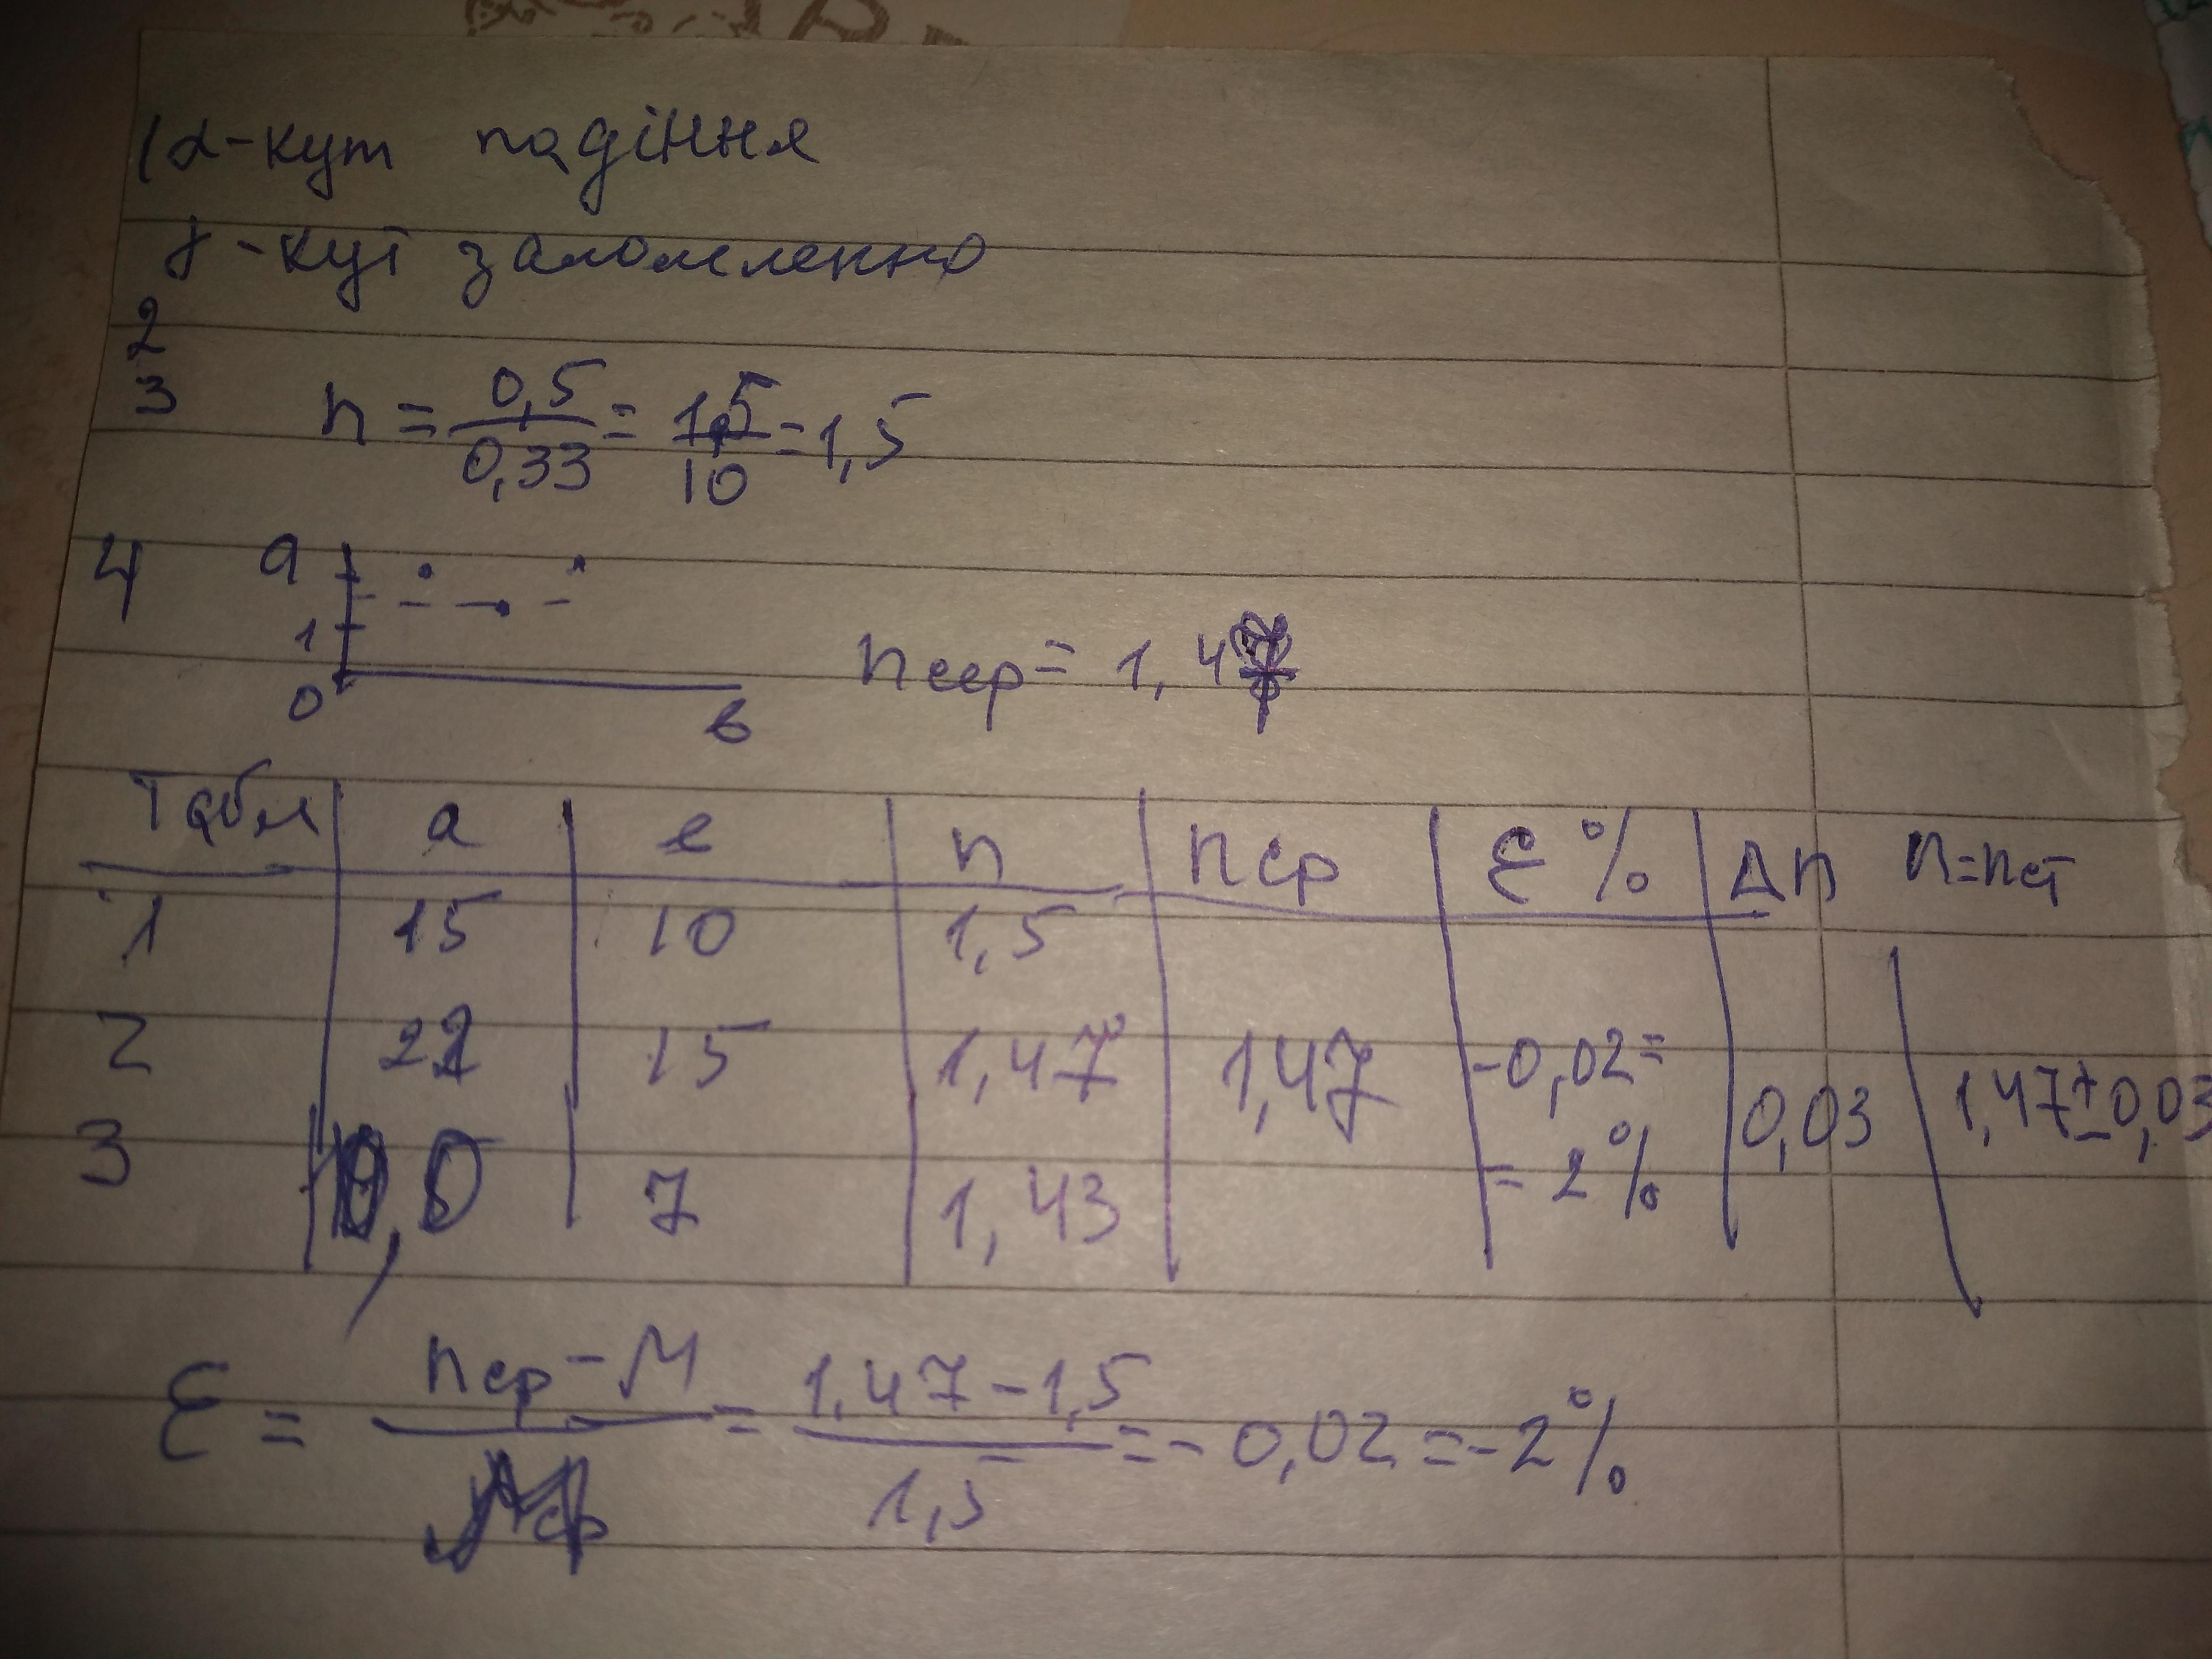 1 α-кут падіння
γ-кут заломленно
2
3 n = 0,5/0,33 = 1,5/10 = 1,5
4 a
1
0 в
nсер = 1,47
Табл a в n nср ε % Δn n=nст
1 15 10 1,5
2 22 15 1,47 1,47 -0,02= 0,03 1,47±0,03
3 7 1,43 = 2%
ε = nср-М/ = 1,47-1,5/1,5 = -0,02 = -2%